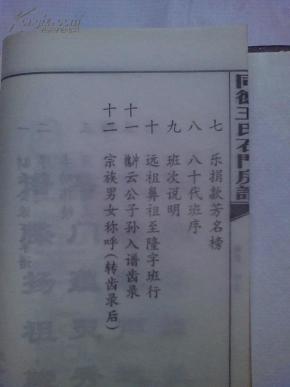 同德王氏石門房譜
七 乐捐款芳名榜
八 八十代班序
九 班次说明
十 远祖鼻祖至隆字班行
十一 云公子孙入谱齿录
十二 宗族男女称呼(转齿录后)